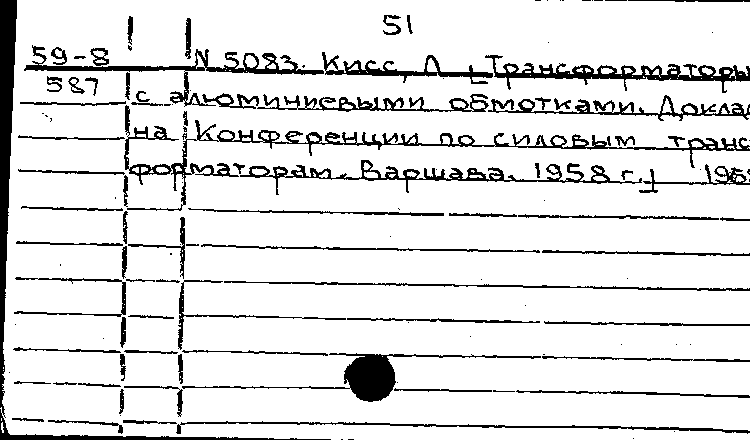 51
59-8 N 5083. Кисс, Л [Трансформаторы
587 с алюминиевыми обмотками. Доклад
на Конференции по силовым транс
форматорам. Варшава. 1958 г.]